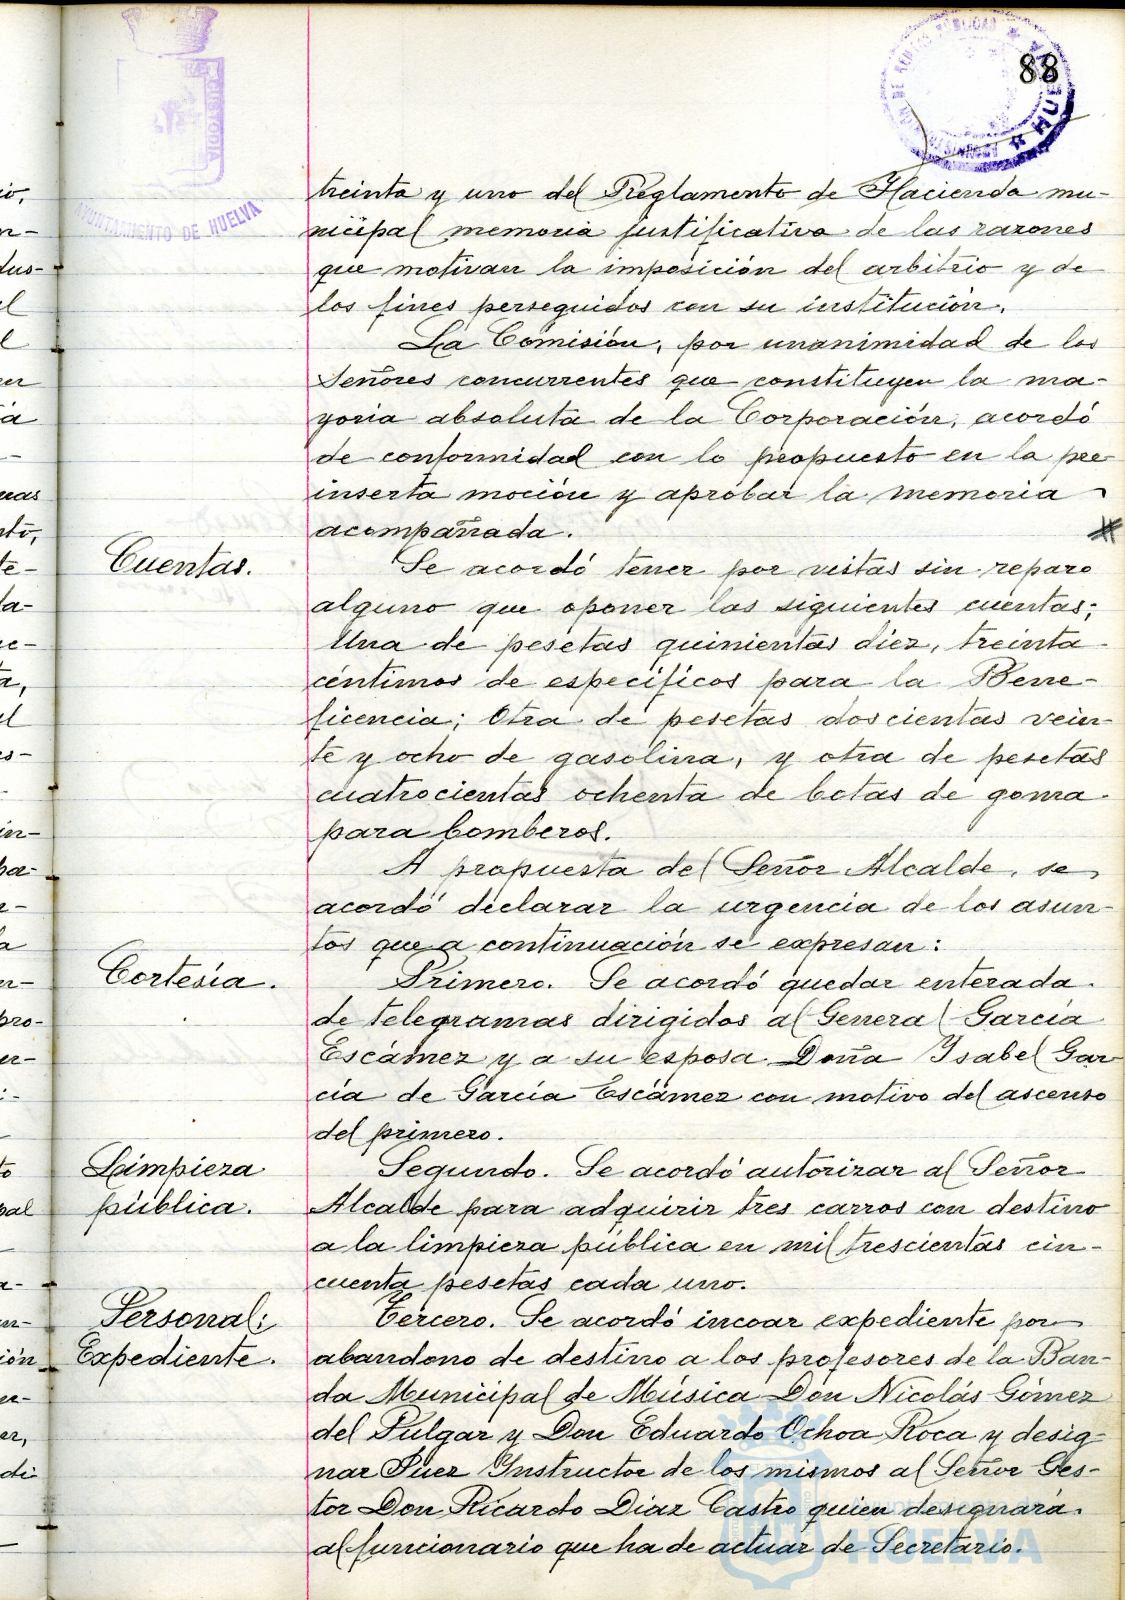 88
CUSTODIA
AYUNTAMIENTO DE HUELVA
HUELVA
treinta y uno del Reglamento de Hacienda mu-
nicipal memoria justificativa de las razones
que motivan la imposición del arbitrio y de
los fines perseguidos con su institución.
La Comisión, por unanimidad de los
Señores concurrentes que constituyen la ma-
yoría absoluta de la Corporación, acordó
de conformidad con lo propuesto en la pre
inserta moción y aprobar la memoria
acompañada.
Cuentas.
Se acordó tener por vistas sin reparo
alguno que oponer las siguientes cuentas;
Una de pesetas quinientas diez, treinta
céntimos de específicos para la Bene-
ficencia; Otra de pesetas doscientas vein-
te y ocho de gasolina, y otra de pesetas
cuatrocientas ochenta de botas de goma
para bomberos.
A propuesta del Señor Alcalde, se
acordó declarar la urgencia de los asun-
tos que a continuación se expresan:
Cortesía.
Primero. Se acordó quedar enterada
de telegramas dirigidos al General García
Escámez y a su esposa Doña Isabel Gar
cía de García Escámez con motivo del ascenso
del primero.
Limpieza
pública.
Segundo. Se acordó autorizar al Señor
Alcalde para adquirir tres carros con destino
a la limpieza pública en mil trescientas cin-
cuenta pesetas cada uno.
Personal:
Expediente.
Tercero. Se acordó incoar expediente por
abandono de destino a los profesores de la Ban-
da Municipal de Música Don Nicolás Gómez
del Pulgar y Don Eduardo Ochoa Roca y desig-
nar Juez Instructor de los mismos al Señor Ges-
tor Don Ricardo Díaz Castro quien designará
al funcionario que ha de actuar de Secretario.
HUELVA